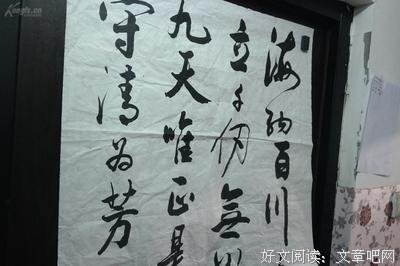 海納百川
立千仞無
九天唯正是
守清為芳
好文阅读：文章吧网